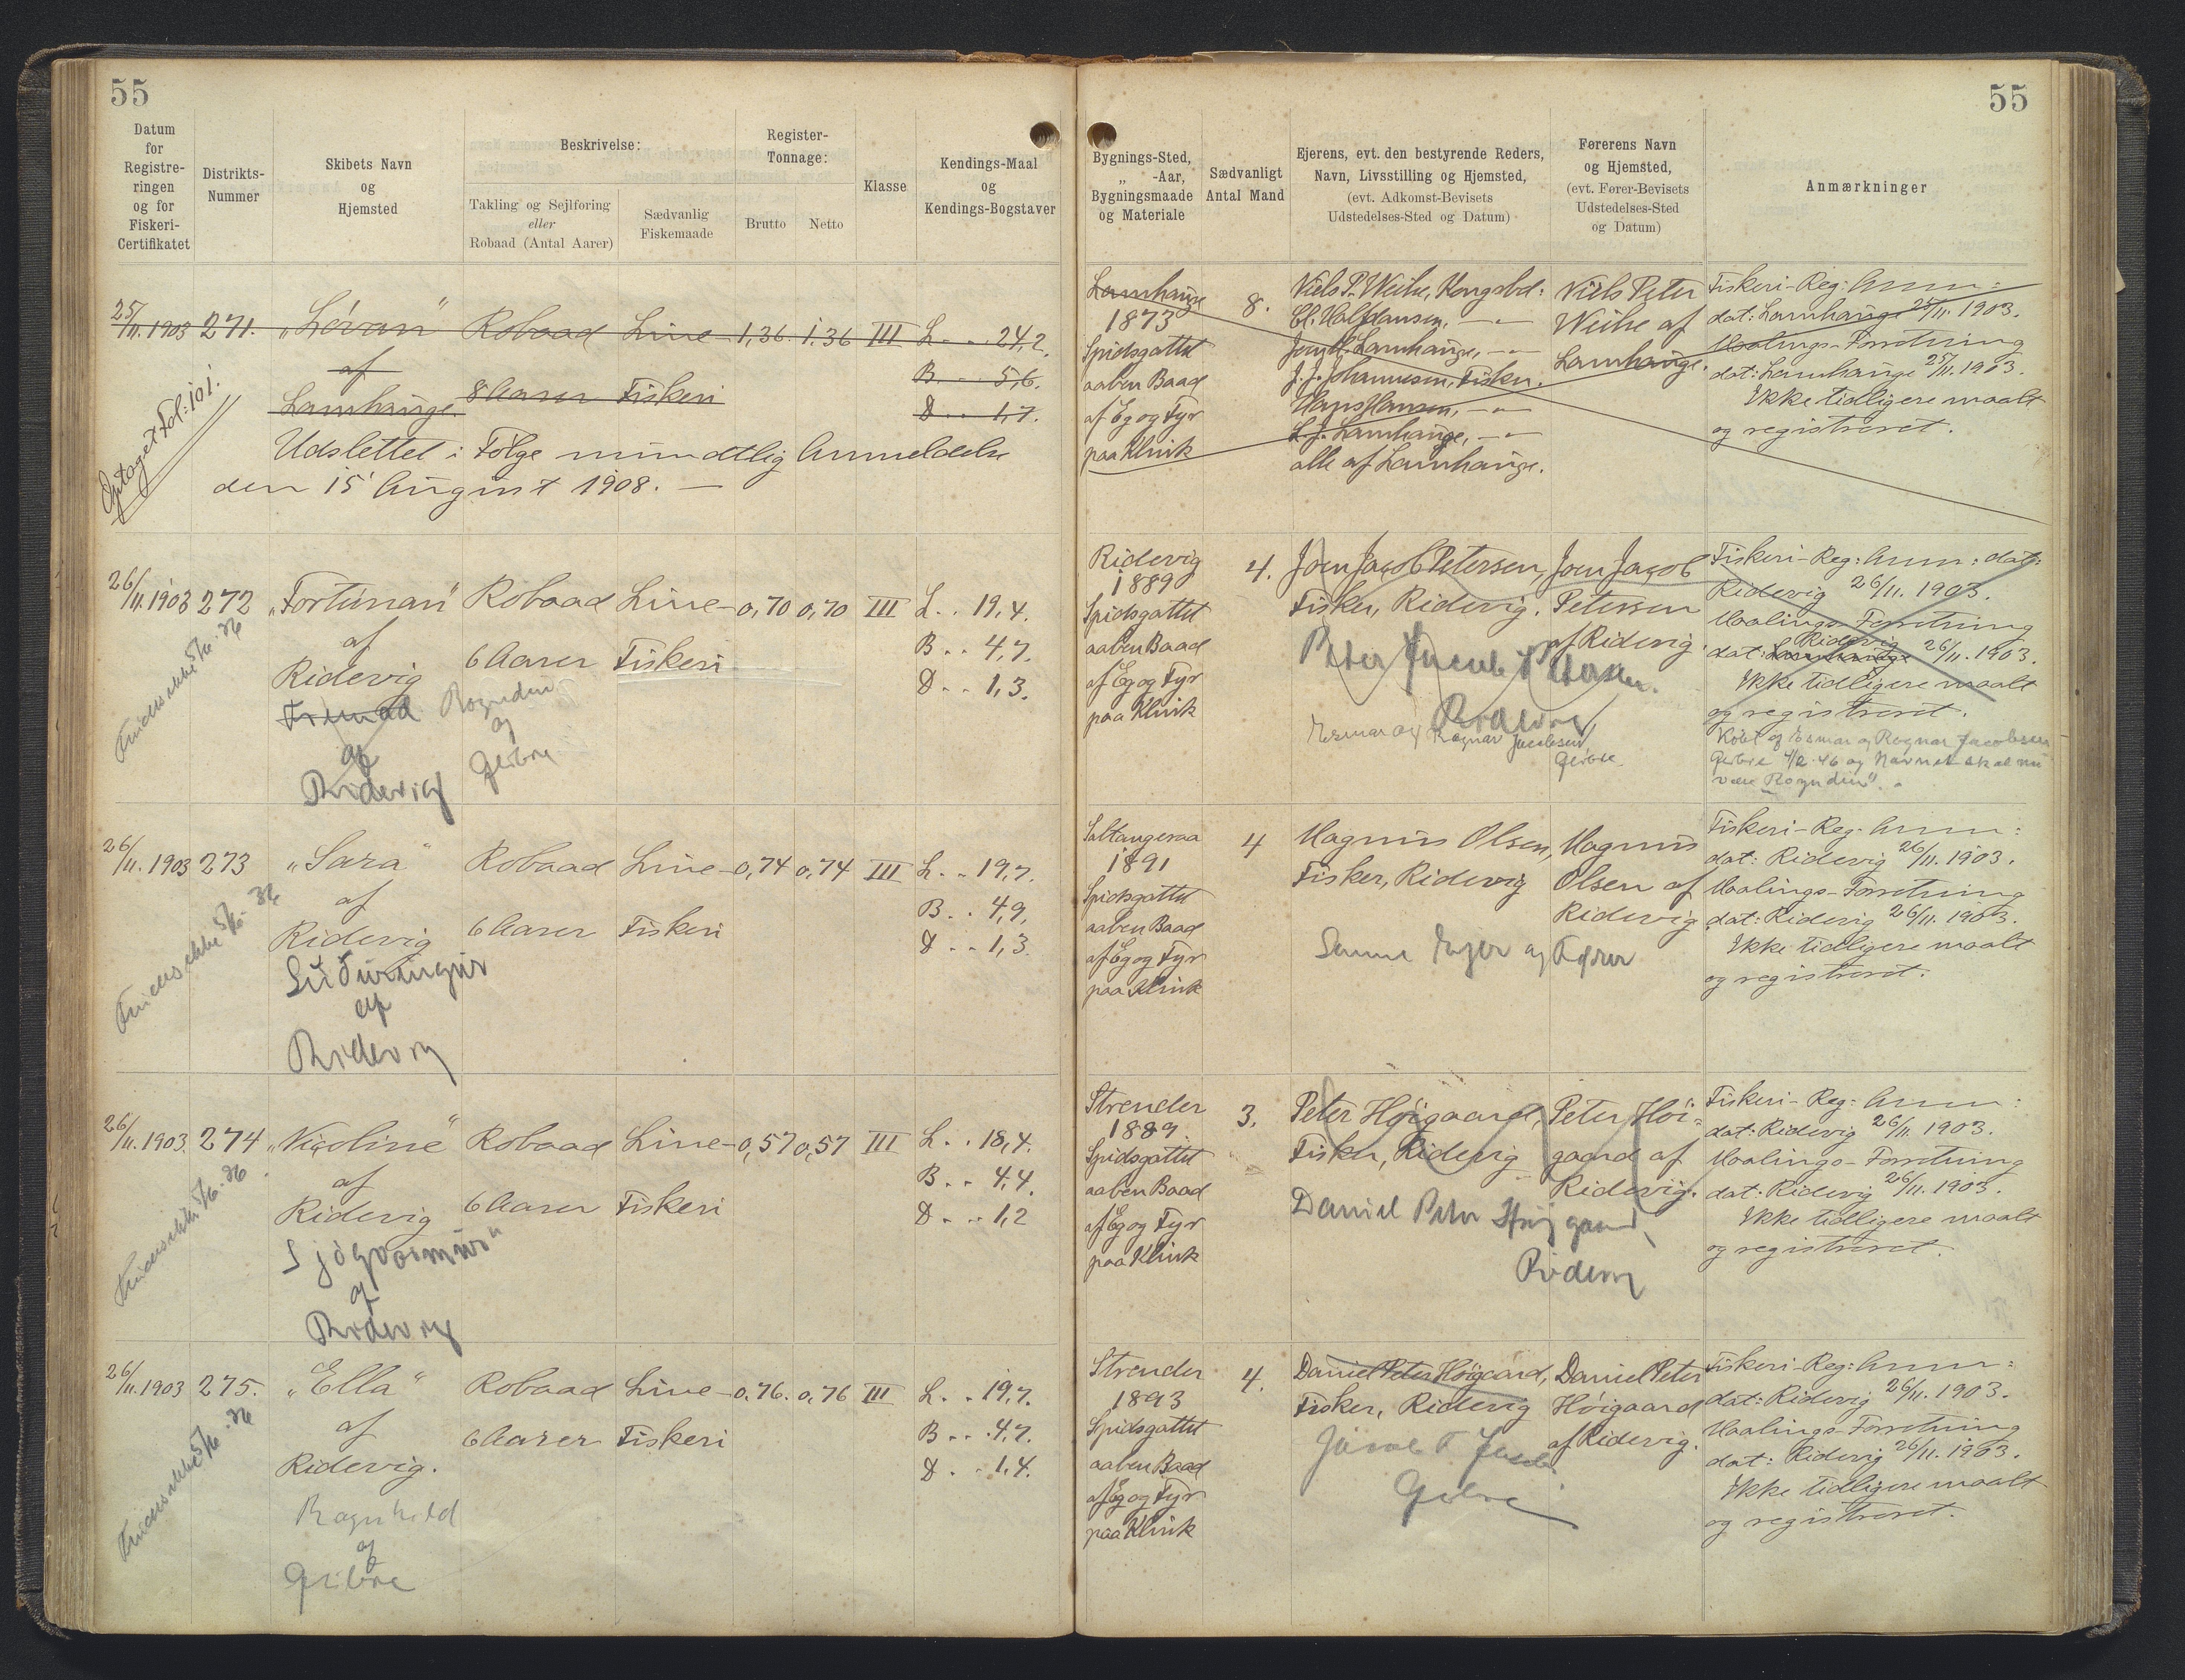 55
55
Datum
for
Registre-
ringen
og for
Fiskeri-
Certifikatet
Distrikts-
Nummer
Skibets Navn
og
Hjemsted
Beskrivelse:
Takling og Sejlføring
eller
Robaad (Antal Aarer)
Sædvanlig
Fiskemaade
Register-
Tonnage:
Brutto
Netto
Klasse
Kendings-Maal
og
Kendings-Bogstaver
Bygnings-Sted,
„ -Aar,
Bygningsmaade
og Materiale
Sædvanligt
Antal Mand
Ejerens, evt. den bestyrende Reders,
Navn, Livsstilling og Hjemsted,
(evt. Adkomst-Bevisets
Udstedelses-Sted og Datum)
Førerens Navn
og Hjemsted,
(evt. Fører-Bevisets
Udstedelses-Sted
og Datum)
Anmærkninger
25/11.1903 271. Robaad Line- 1,36. 1,36 III L. . . 24,2.
af B. . . 5,6.
Lamhauge. 8 Aarer Fiskeri D. . . 1,7.
Optaget Fol: 101.
Udslettet i Følge mundtlig Anmeldelse
den 15 August 1908. —
Lamhauge
1873
Spidsgattet
aaben Baad
af Eg og Fyr
paa Klink
8.
Niels P. Weihe, Kongsbd:
Hansen, — „ —
alle af Lamhauge.
Niels Peter
Weihe af
Lamhauge.
Fiskeri-Reg: Anm:
dat: Lamhauge 25/11. 1903.
Maalings-Forretning
dat: Lamhauge 25/11. 1903.
Ikke tidligere maalt
og registreret.
26/11.1903 272 Robaad Line- 0,70 0,70 III L. . 19,4.
af 6 Aarer Fiskeri B. . 4,7.
Ridevig D. . 1,3.
af
Ridevig
og
Findes ikke 5/6-36
Ridevig
1889
Spidsgattet
aaben Baad
af Eg og Fyr
paa Klink
4.
Joen Jacob Petersen,
Fisker, Ridevig.
Ridevig
Ragnar Jacobsen
Joen Jacob
Petersen
af Ridevig.
Fiskeri-Reg: Anm: dat:
Ridevig 26/11. 1903.
Maalings-Forretning
Ridevig
dat: Lamhauge 26/11. 1903.
Ikke tidligere maalt
og registreret.
Købt af Esmar og Ragnar Jacobsen
26/11. 1903 273 „Sara“ Robaad Line- 0,74 0,74 III L. . 19,7.
af B. . 4,9.
Ridevig 6 Aarer Fiskeri D. . 1,3.
af
Ridevig
Findes ikke 5/6-36
1891
Spidsgattet
aaben Baad
af Eg og Fyr
paa Klink
4
Magnus Olsen,
Fisker, Ridevig
Samme Ejer og Fører
Magnus
Olsen af
Ridevig
Fiskeri-Reg: Anm:
dat: Ridevig 26/11. 1903.
Maalings-Forretning
dat: Ridevig 26/11. 1903.
Ikke tidligere maalt
og registreret.
26/11. 1903. 274 „Nicoline“ Robaad Line- 0,57 0,57 III L. . 18,4.
af B. . 4,4.
Ridevig 6 Aarer Fiskeri D. . . 1,2
af
Ridevig
Findes ikke 5/6-36
Strender
1889
Spidsgattet
aaben Baad
af Eg og Fyr
paa Klink
3.
Peter Høigaard,
Fisker, Ridevig
Daniel Peter Højgaard,
Ridevig
Peter Høi-
gaard af
Ridevig.
Fiskeri-Reg: Anm:
dat: Ridevig 26/11. 1903.
Maalings-Forretning
dat: Ridevig 26/11. 1903.
Ikke tidligere maalt
og registreret.
26/11.1903 275. „Ella“ Robaad Line- 0,76. 0,76 III L. . 19,7.
af 6 Aarer Fiskeri B. . . 4,7.
Ridevig. D. . . 1,4.
Ragnhild
af
Findes ikke 5/6-36
Strender
1893
Spidsgattet
aaben Baad
af Eg og Fyr
paa Klink
4.
Daniel Peter Høigaard,
Fisker, Ridevig
Daniel Peter
Høigaard
af Ridevig.
Fiskeri-Reg: Anm:
dat: Ridevig 26/11. 1903.
Maalings-Forretning
dat: Ridevig 26/11. 1903.
Ikke tidligere maalt
og registreret.